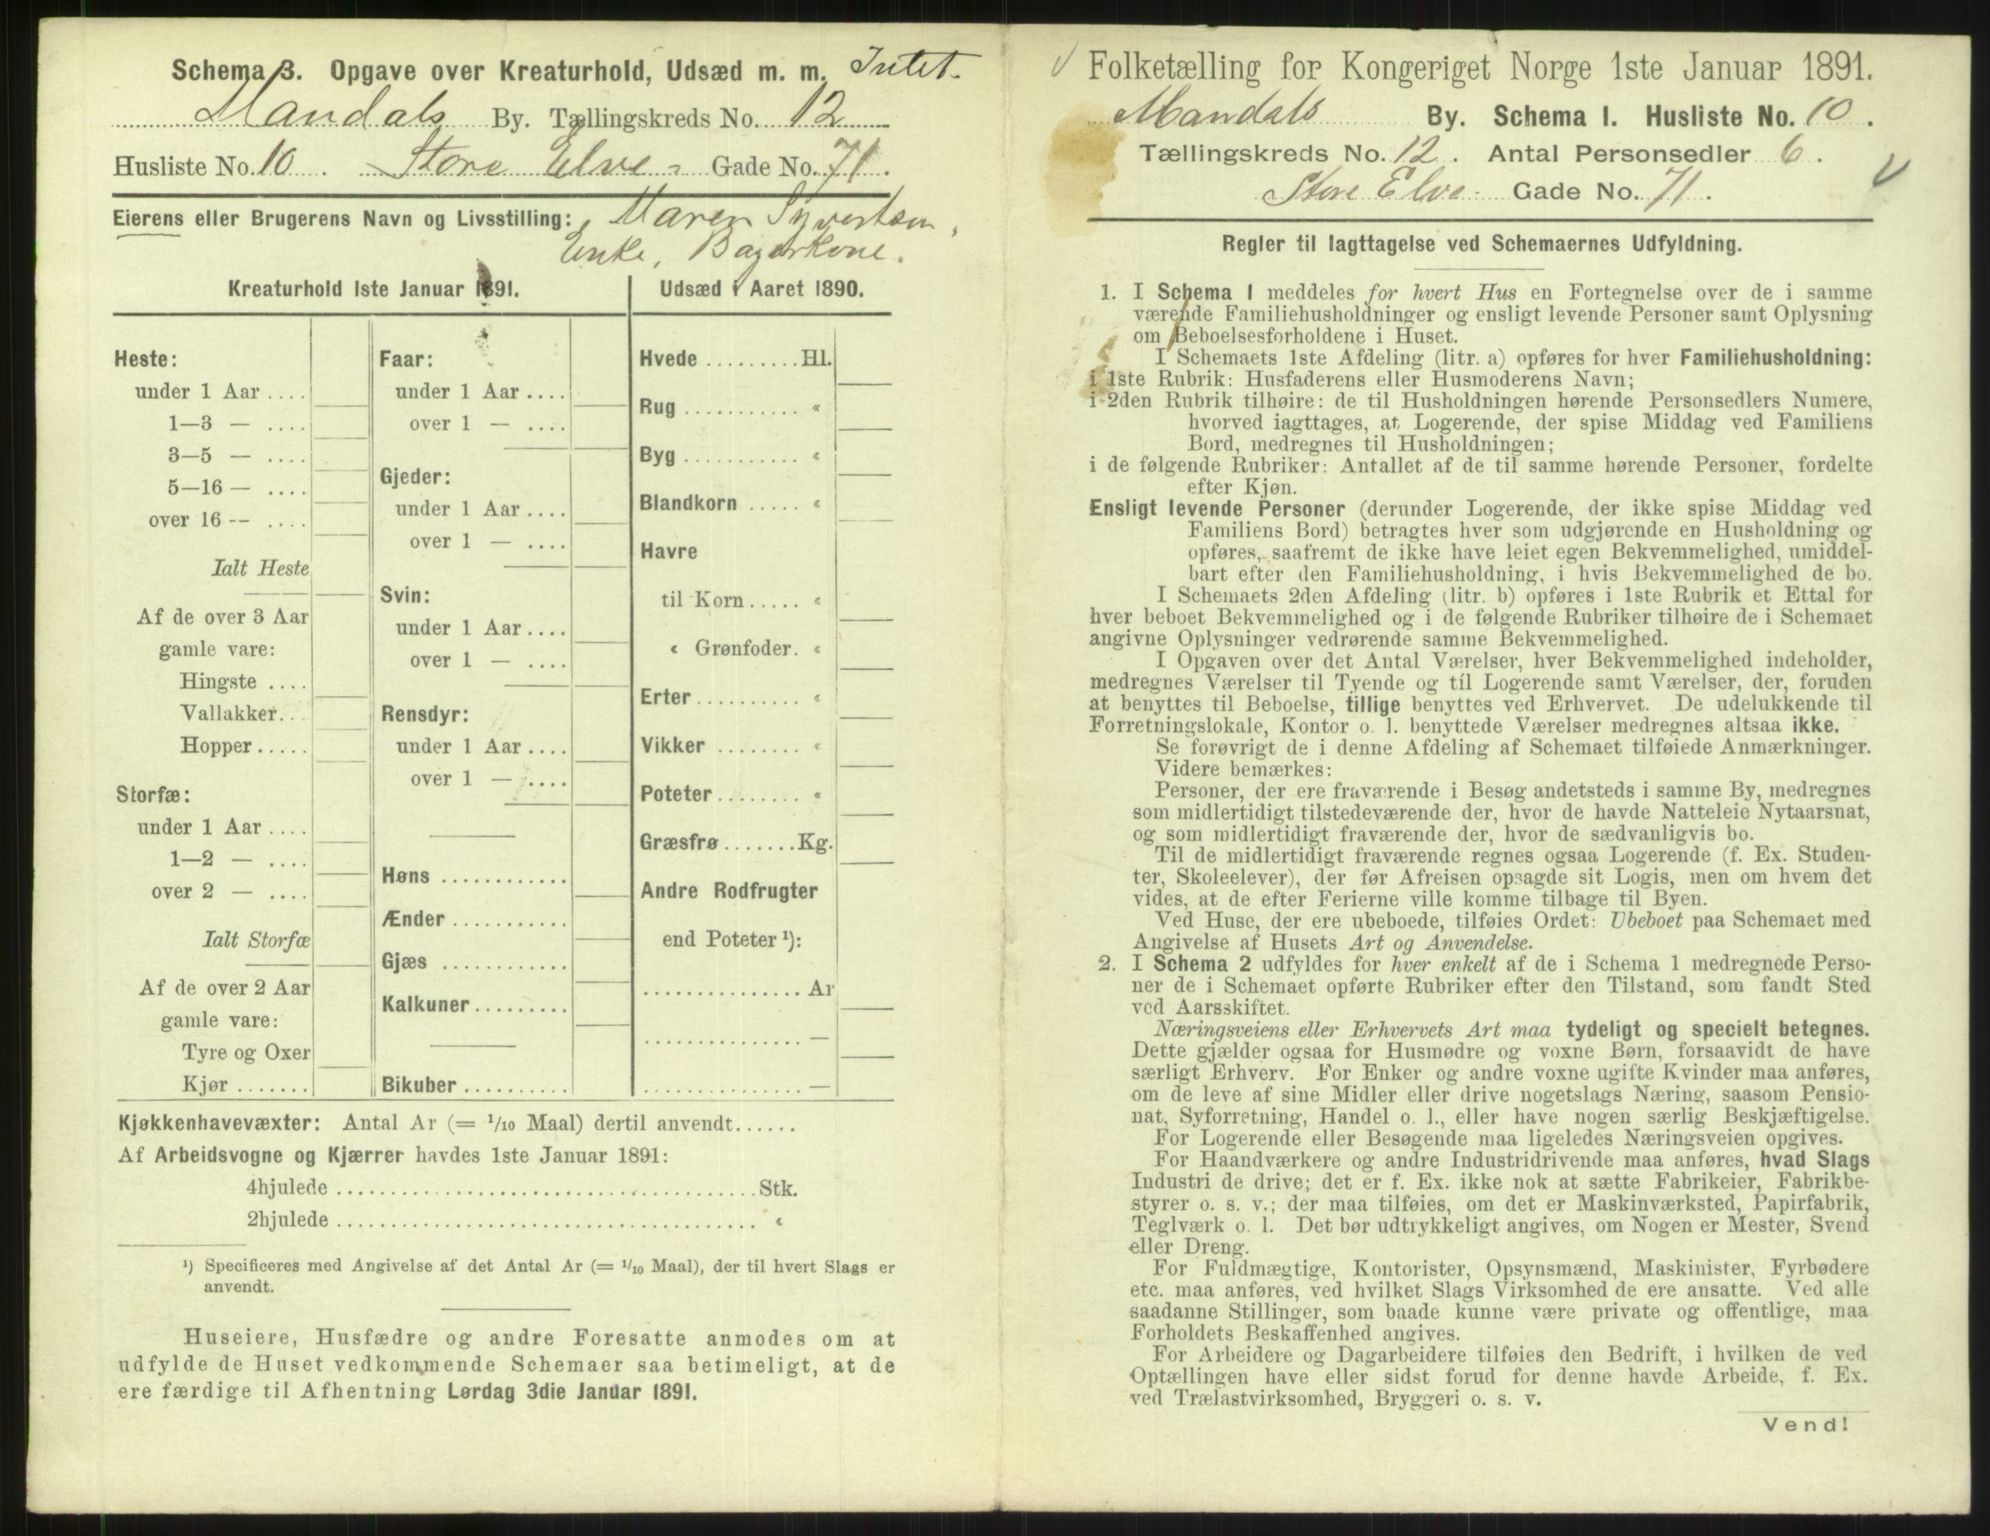 Schema 3. Opgave over Kreaturhold, Udsæd m. m. Intet.
Mandals By. Tællingskreds No. 12
Husliste No. 10. Store Elve- Gade No. 71.
Eierens eller Brugerens Navn og Livsstilling: Maren Syvertsen,
Enke, Bagerkone.
Kreaturhold 1ste Januar 1891.
Heste:
under 1 Aar ....
1—3 — ....
3—5 — ....
5—16 — ....
over 16 -- ....
Ialt Heste
Af de over 3 Aar
gamle vare:
Hingste ....
Vallakker...
Hopper.....
Storfæ:
under 1 Aar ....
1—2 — ....
over 2 — ....
Ialt Storfæ
Af de over 2 Aar
gamle vare:
Tyre og Oxer
Kjør .......
Faar:
under 1 Aar ....
over 1 — ....
Gjeder:
under 1 Aar ....
over 1 — ....
Svin:
under 1 Aar ....
over 1 — ....
Rensdyr:
under 1 Aar ....
over 1 — ....
Høns ............
Ænder ...........
Gjæs ............
Kalkuner.........
Bikuber ..........
Udsæd i Aaret 1890.
Hvede .........Hl.
Rug ........... «
Byg ........... «
Blandkorn ..... «
Havre
til Korn ..... «
« Grønfoder. «
Erter .......... «
Vikker ......... «
Poteter ........ «
Græsfrø .......Kg.
Andre Rodfrugter
end Poteter ¹):
............... Ar
............... —
............... —
Kjøkkenhavevæxter: Antal Ar (= 1/10 Maal) dertil anvendt......
Af Arbeidsvogne og Kjærrer havdes 1ste Januar 1891:
4hjulede ........................................Stk.
2hjulede ........................................ «
¹) Specificeres med Angivelse af det Antal Ar (= 1/10 Maal), der til hvert Slags er
anvendt.
Huseiere, Husfædre og andre Foresatte anmodes om at
udfylde de Huset vedkommende Schemaer saa betimeligt, at de
ere færdige til Afhentning Lørdag 3die Januar 1891.
Folketælling for Kongeriget Norge 1ste Januar 1891.
Mandals By. Schema 1. Husliste No. 10.
Tællingskreds No. 12. Antal Personsedler 6.
Store Elve- Gade No. 71.
Regler til Iagttagelse ved Schemaernes Udfyldning.
1. I Schema 1 meddeles for hvert Hus en Fortegnelse over de i samme
værende Familiehusholdninger og ensligt levende Personer samt Oplysning
om Beboelsesforholdene i Huset.
I Schemaets 1ste Afdeling (litr. a) opføres for hver Familiehusholdning:
i 1ste Rubrik: Husfaderens eller Husmoderens Navn;
i 2den Rubrik tilhøire: de til Husholdningen hørende Personsedlers Numere,
hvorved iagttages, at Logerende, der spise Middag ved Familiens
Bord, medregnes til Husholdningen;
i de følgende Rubriker: Antallet af de til samme hørende Personer, fordelte
efter Kjøn.
Ensligt levende Personer (derunder Logerende, der ikke spise Middag ved
Familiens Bord) betragtes hver som udgjørende en Husholdning og
opføres, saafremt de ikke have leiet egen Bekvemmelighed, umiddel-
bart efter den Familiehusholdning, i hvis Bekvemmelighed de bo.
I Schemaets 2den Afdeling (litr. b) opføres i 1ste Rubrik et Ettal for
hver beboet Bekvemmelighed og i de følgende Rubriker tilhøire de i Schemaet
angivne Oplysninger vedrørende samme Bekvemmelighed.
I Opgaven over det Antal Værelser, hver Bekvemmelighed indeholder,
medregnes Værelser til Tyende og til Logerende samt Værelser, der, foruden
at benyttes til Beboelse, tillige benyttes ved Erhvervet. De udelukkende til
Forretningslokale, Kontor o. l. benyttede Værelser medregnes altsaa ikke.
Se forøvrigt de i denne Afdeling af Schemaet tilføiede Anmærkninger.
Videre bemærkes:
Personer, der ere fraværende i Besøg andetsteds i samme By, medregnes
som midlertidigt tilstedeværende der, hvor de havde Natteleie Nytaarsnat,
og som midlertidigt fraværende der, hvor de sædvanligvis bo.
Til de midlertidigt fraværende regnes ogsaa Logerende (f. Ex. Studen-
ter, Skoleelever), der før Afreisen opsagde sit Logis, men om hvem det
vides, at de efter Ferierne ville komme tilbage til Byen.
Ved Huse, der ere ubeboede, tilføies Ordet: Ubeboet paa Schemaet med
Angivelse af Husets Art og Anvendelse.
2. I Schema 2 udfyldes for hver enkelt af de i Schema 1 medregnede Perso-
ner de i Schemaet opførte Rubriker efter den Tilstand, som fandt Sted
ved Aarsskiftet.
Næringsveiens eller Erhvervets Art maa tydeligt og specielt betegnes.
Dette gjælder ogsaa for Husmødre og voxne Børn, forsaavidt de have
særligt Erhverv. For Enker og andre voxne ugifte Kvinder maa anføres,
om de leve af sine Midler eller drive nogetslags Næring, saasom Pensio-
nat, Syforretning, Handel o. l., eller have nogen særlig Beskjæftigelse.
For Logerende eller Besøgende maa ligeledes Næringsveien opgives.
For Haandværkere og andre Industridrivende maa anføres, hvad Slags
Industri de drive; det er f. Ex. ikke nok at sætte Fabrikeier, Fabrikbe-
styrer o. s. v.; der maa tilføies, om det er Maskinværksted, Papirfabrik,
Teglværk o. l. Det bør udtrykkeligt angives, om Nogen er Mester, Svend
eller Dreng.
For Fuldmægtige, Kontorister, Opsynsmænd, Maskinister, Fyrbødere
etc. maa anføres, ved hvilket Slags Virksomhed de ere ansatte. Ved alle
saadanne Stillinger, som baade kunne være private og offentlige, maa
Forholdets Beskaffenhed angives.
For Arbeidere og Dagarbeidere tilføies den Bedrift, i hvilken de ved
Optællingen have eller sidst forud for denne havde Arbeide, f. Ex.
ved Trælastvirksomhed, Bryggeri o. s. v.
Vend!